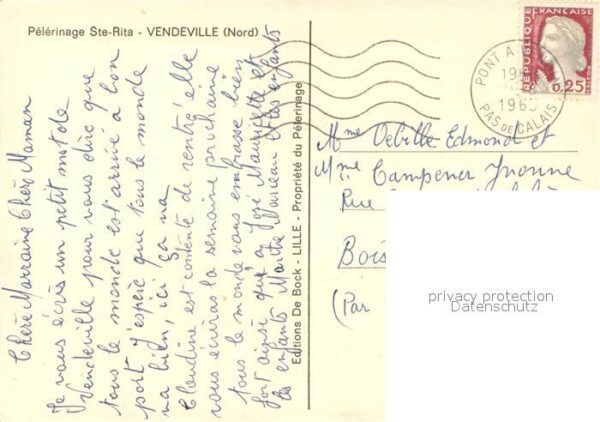 Pélérinage Ste-Rita - VENDEVILLE (Nord)
Chère Marraine Chère Maman
Je vous écris un petit mot de
Vendeville pour vous dire que
tous le monde est arrivé à bon
port j'espère que tous le monde
va bien, ici ça va
Claudine est contente de rentré elle
vous écriras la semaine prochaine
tous le monde vous embrasse bien
fort ainsi qu'a José Mauricette et
les enfants Marthe et les enfants
Editions De Bock - LILLE - Propriété du Pélerinage
REPUBLIQUE FRANÇAISE
0,25
PONT A
196
PAS DE CALAIS
Mme Debille Edmond et
Mme Campener Yvonne
Rue
Bois
(Par
privacy protection
Datenschutz